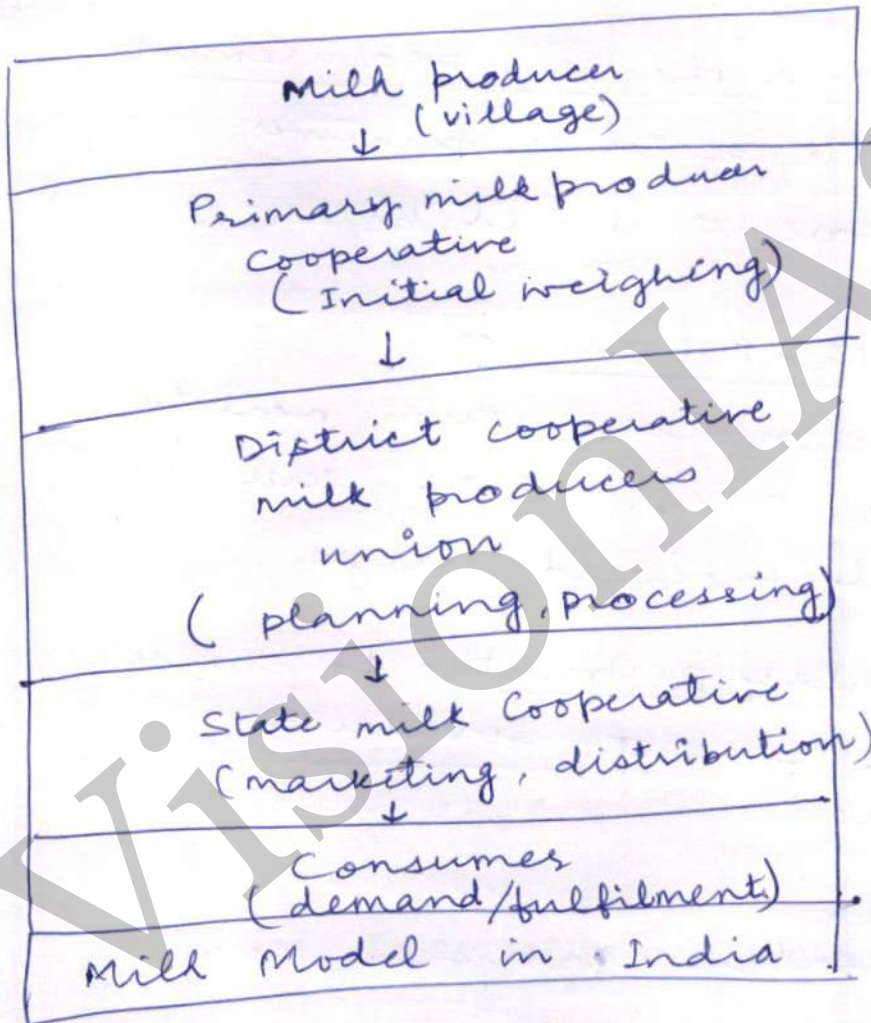 Milk producer
(village)
↓
Primary milk producer
cooperative
(Initial weighing)
↓
District cooperative
milk producers
union
( planning, processing)
↓
State milk Cooperative
(marketing, distribution)
↓
Consumer
(demand/fulfilment)
Milk Model in India
VisionIAS